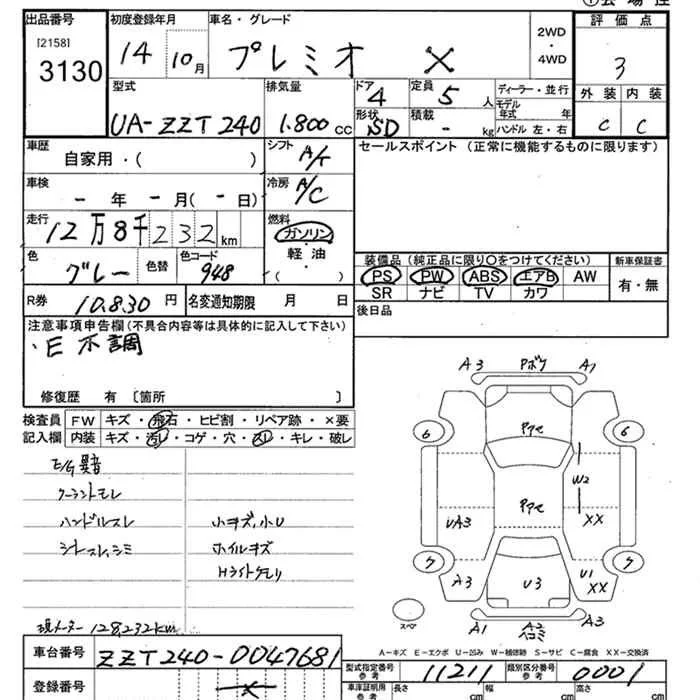 出品番号 初度登録年月 車名・グレード 2WD・4WD 評価点
[2158]
3130
14 10月 プレミオ X 3
外装 内装
C C
型式 排気量 ドア 定員 ディーラー・並行
UA-ZZT240 1.800cc 4 5人 モデル年式 年
形状 積載 ハンドル 左・右
SD - kg
車歴 シフト セールスポイント(正常に機能するものに限ります)
自家用・( ) A/T
車検 冷房
- 年 - 月(- 日) A/C
走行 燃料
12万8千232km ガソリン・軽油・( )
色 色替 色コード
グレー 948
装備品(純正品に限り○をつけてください) 新車保証書
PS PW ABS エアB AW 有・無
SR ナビ TV カワ
R券 10.830円 名変通知期限 月 日
後日品
注意事項申告欄(不具合内容等は具体的に記入して下さい)
・E不調
修復歴 有〔箇所 〕
検査員記入欄
FW キズ・飛石・ヒビ割・リペア跡・×要
内装 キズ・汚レ・コゲ・穴・スレ・キレ・破レ
E/G異音
クーラントモレ
ハンドルスレ 小キズ,小U
シートスレ,シミ ホイルキズ
Hライトクモリ
現メーター 128,232km
A3 Pボケ A1
6 Pアセ 6
W2
UA3 Pアセ XX
7 7
A3 U3 U1 XX
スペア
A1 A2 A3
A-キズ E-エクボ U-凹み W-補修跡 S-サビ C-腐食 XX-交換済
車台番号 ZZT240-0047681
型式指定番号 11211 類別区分番号 0001
登録番号 ×
車庫証明用参考 長さ cm 幅 cm 高さ cm